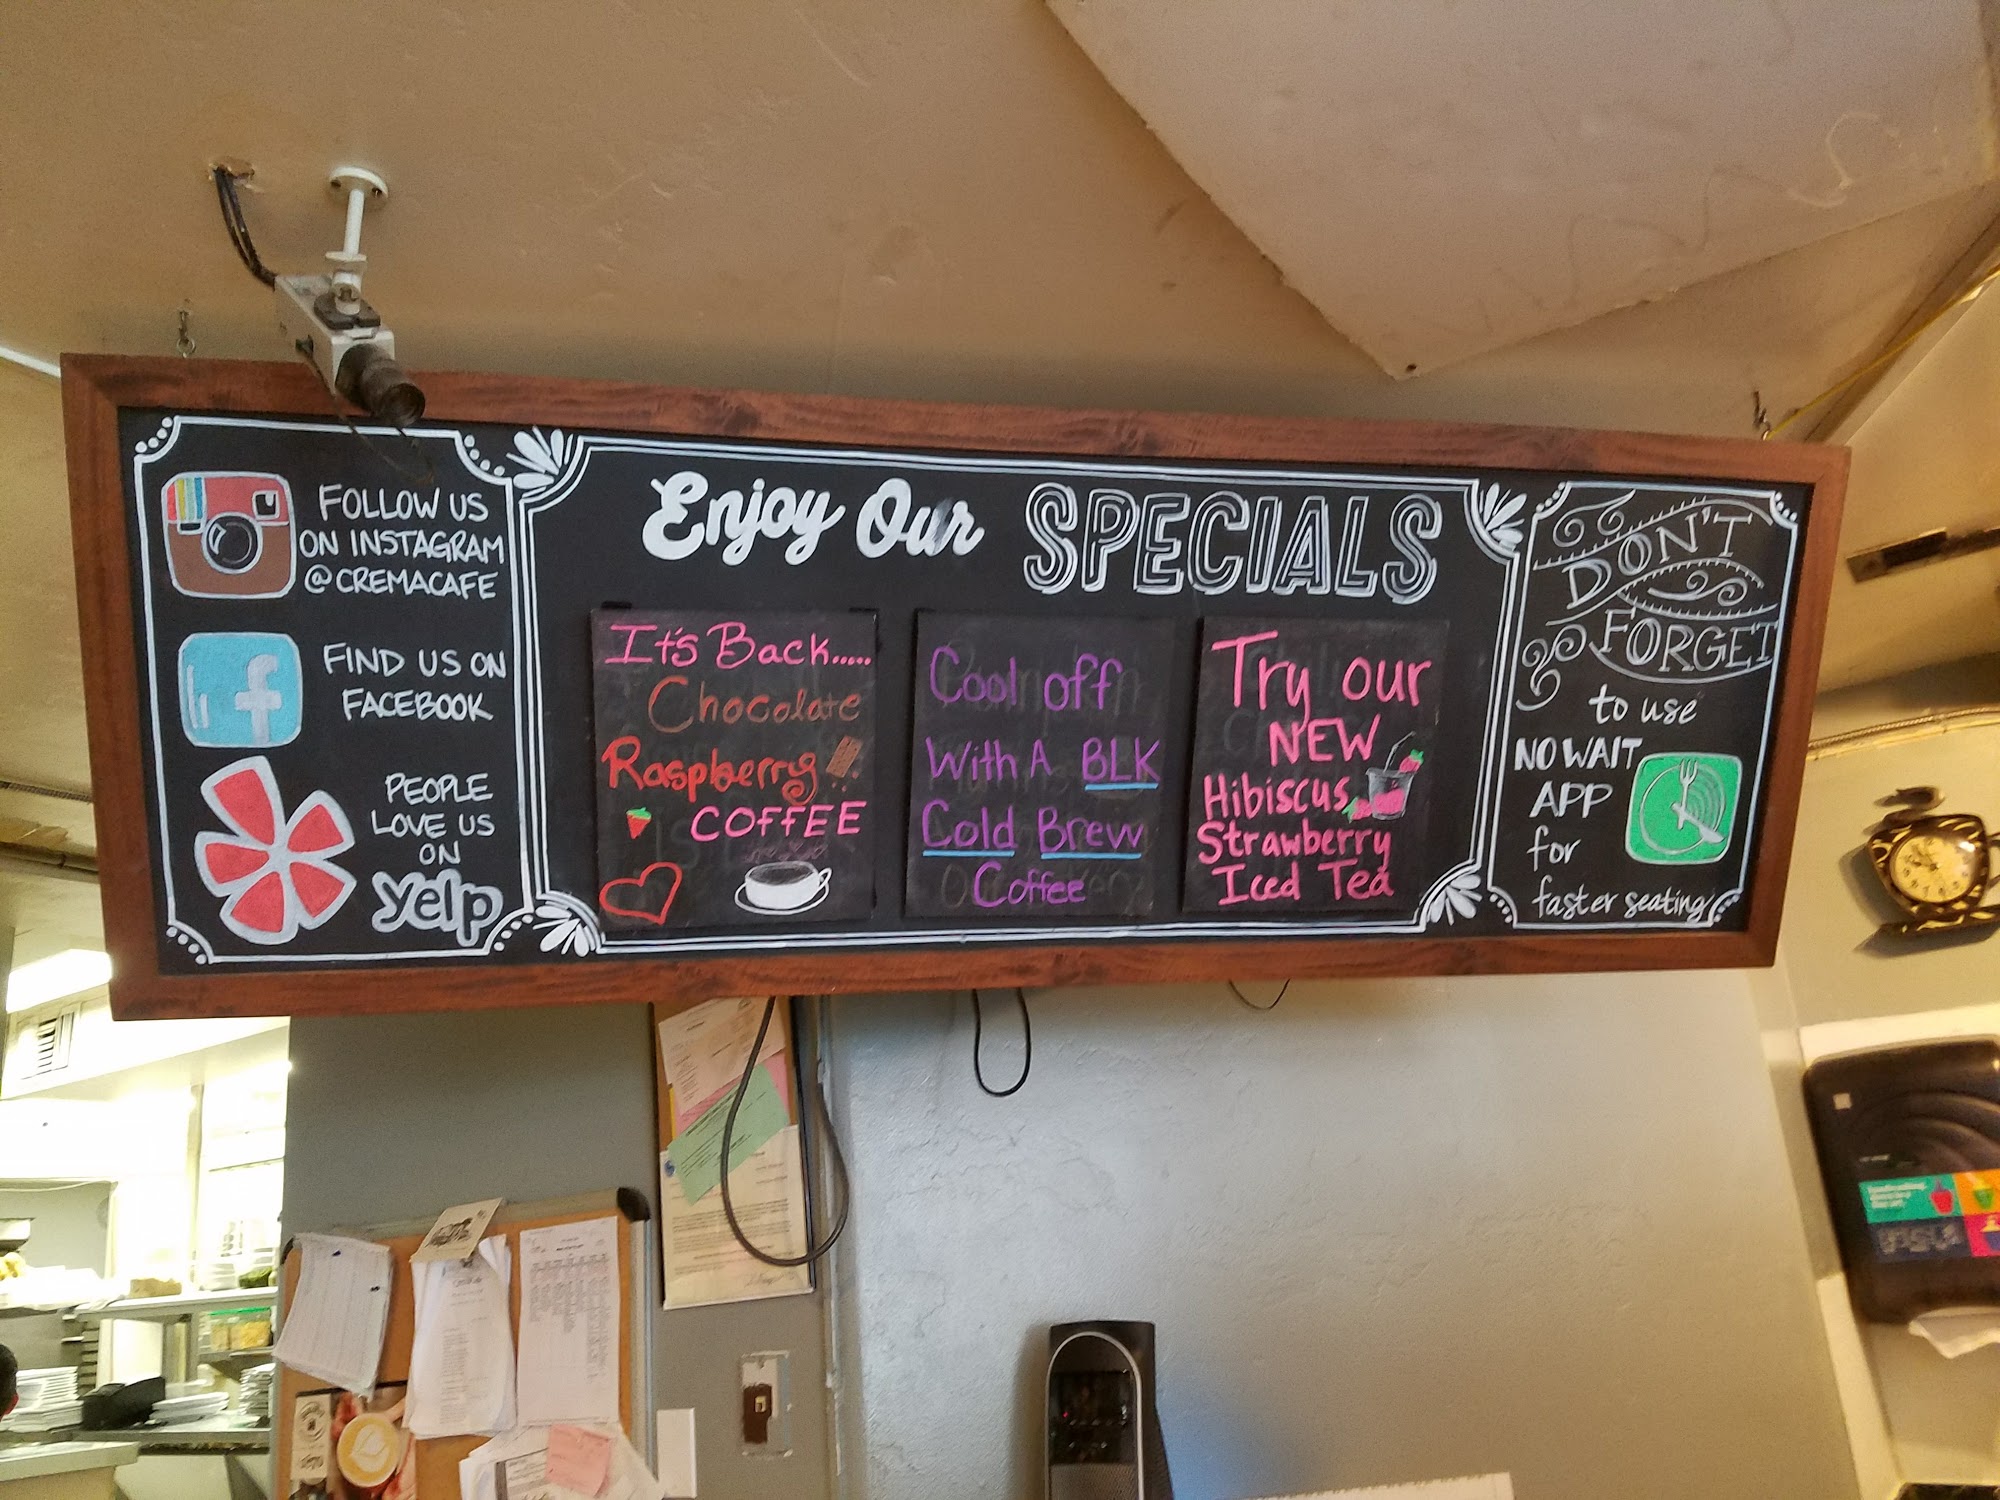 FOLLOW US
ON INSTAGRAM
@CREMACAFE
FIND US ON
FACEBOOK
PEOPLE
LOVE US
ON
yelp
Enjoy Our SPECIALS
It's Back.....
Chocolate
Raspberry
COFFEE
Cool off
With A BLK
Cold Brew
Coffee
Try our
NEW
Hibiscus
Strawberry
Iced Tea
DON'T
FORGET
to use
NO WAIT
APP
for
faster seating